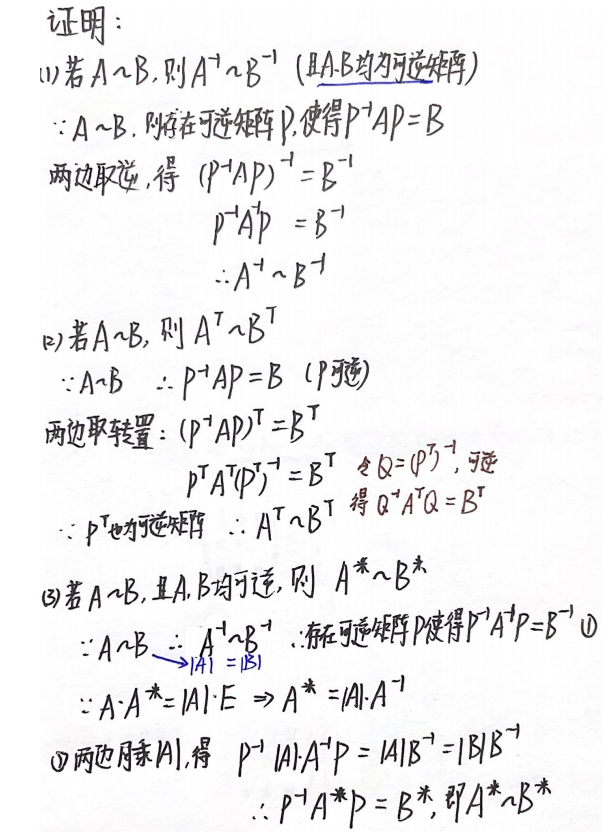 证明：
(1) 若A~B,则A⁻¹~B⁻¹ (且A.B均为可逆矩阵)
∵A~B,则存在可逆矩阵P,使得P⁻¹AP=B
两边取逆,得 (P⁻¹AP)⁻¹=B⁻¹
P⁻¹A⁻¹P =B⁻¹
∴A⁻¹~B⁻¹
(2) 若A~B, 则 Aᵀ~Bᵀ
∵A~B ∴P⁻¹AP=B (P可逆)
两边取转置: (P⁻¹AP)ᵀ=Bᵀ
PᵀAᵀ(Pᵀ)⁻¹=Bᵀ 令Q=(Pᵀ)⁻¹,可逆
∵Pᵀ也为可逆矩阵 ∴Aᵀ~Bᵀ 得Q⁻¹AᵀQ=Bᵀ
(3) 若A~B,且A,B均可逆,则 A*~B*
∵A~B ∴A⁻¹~B⁻¹ ∴存在可逆矩阵P使得P⁻¹A⁻¹P=B⁻¹ ①
|A|=|B|
∵A·A*=|A|·E ⇒ A*=|A|·A⁻¹
①两边同乘|A|,得 P⁻¹|A|·A⁻¹P=|A|B⁻¹=|B|B⁻¹
∴P⁻¹A*P=B*,即A*~B*